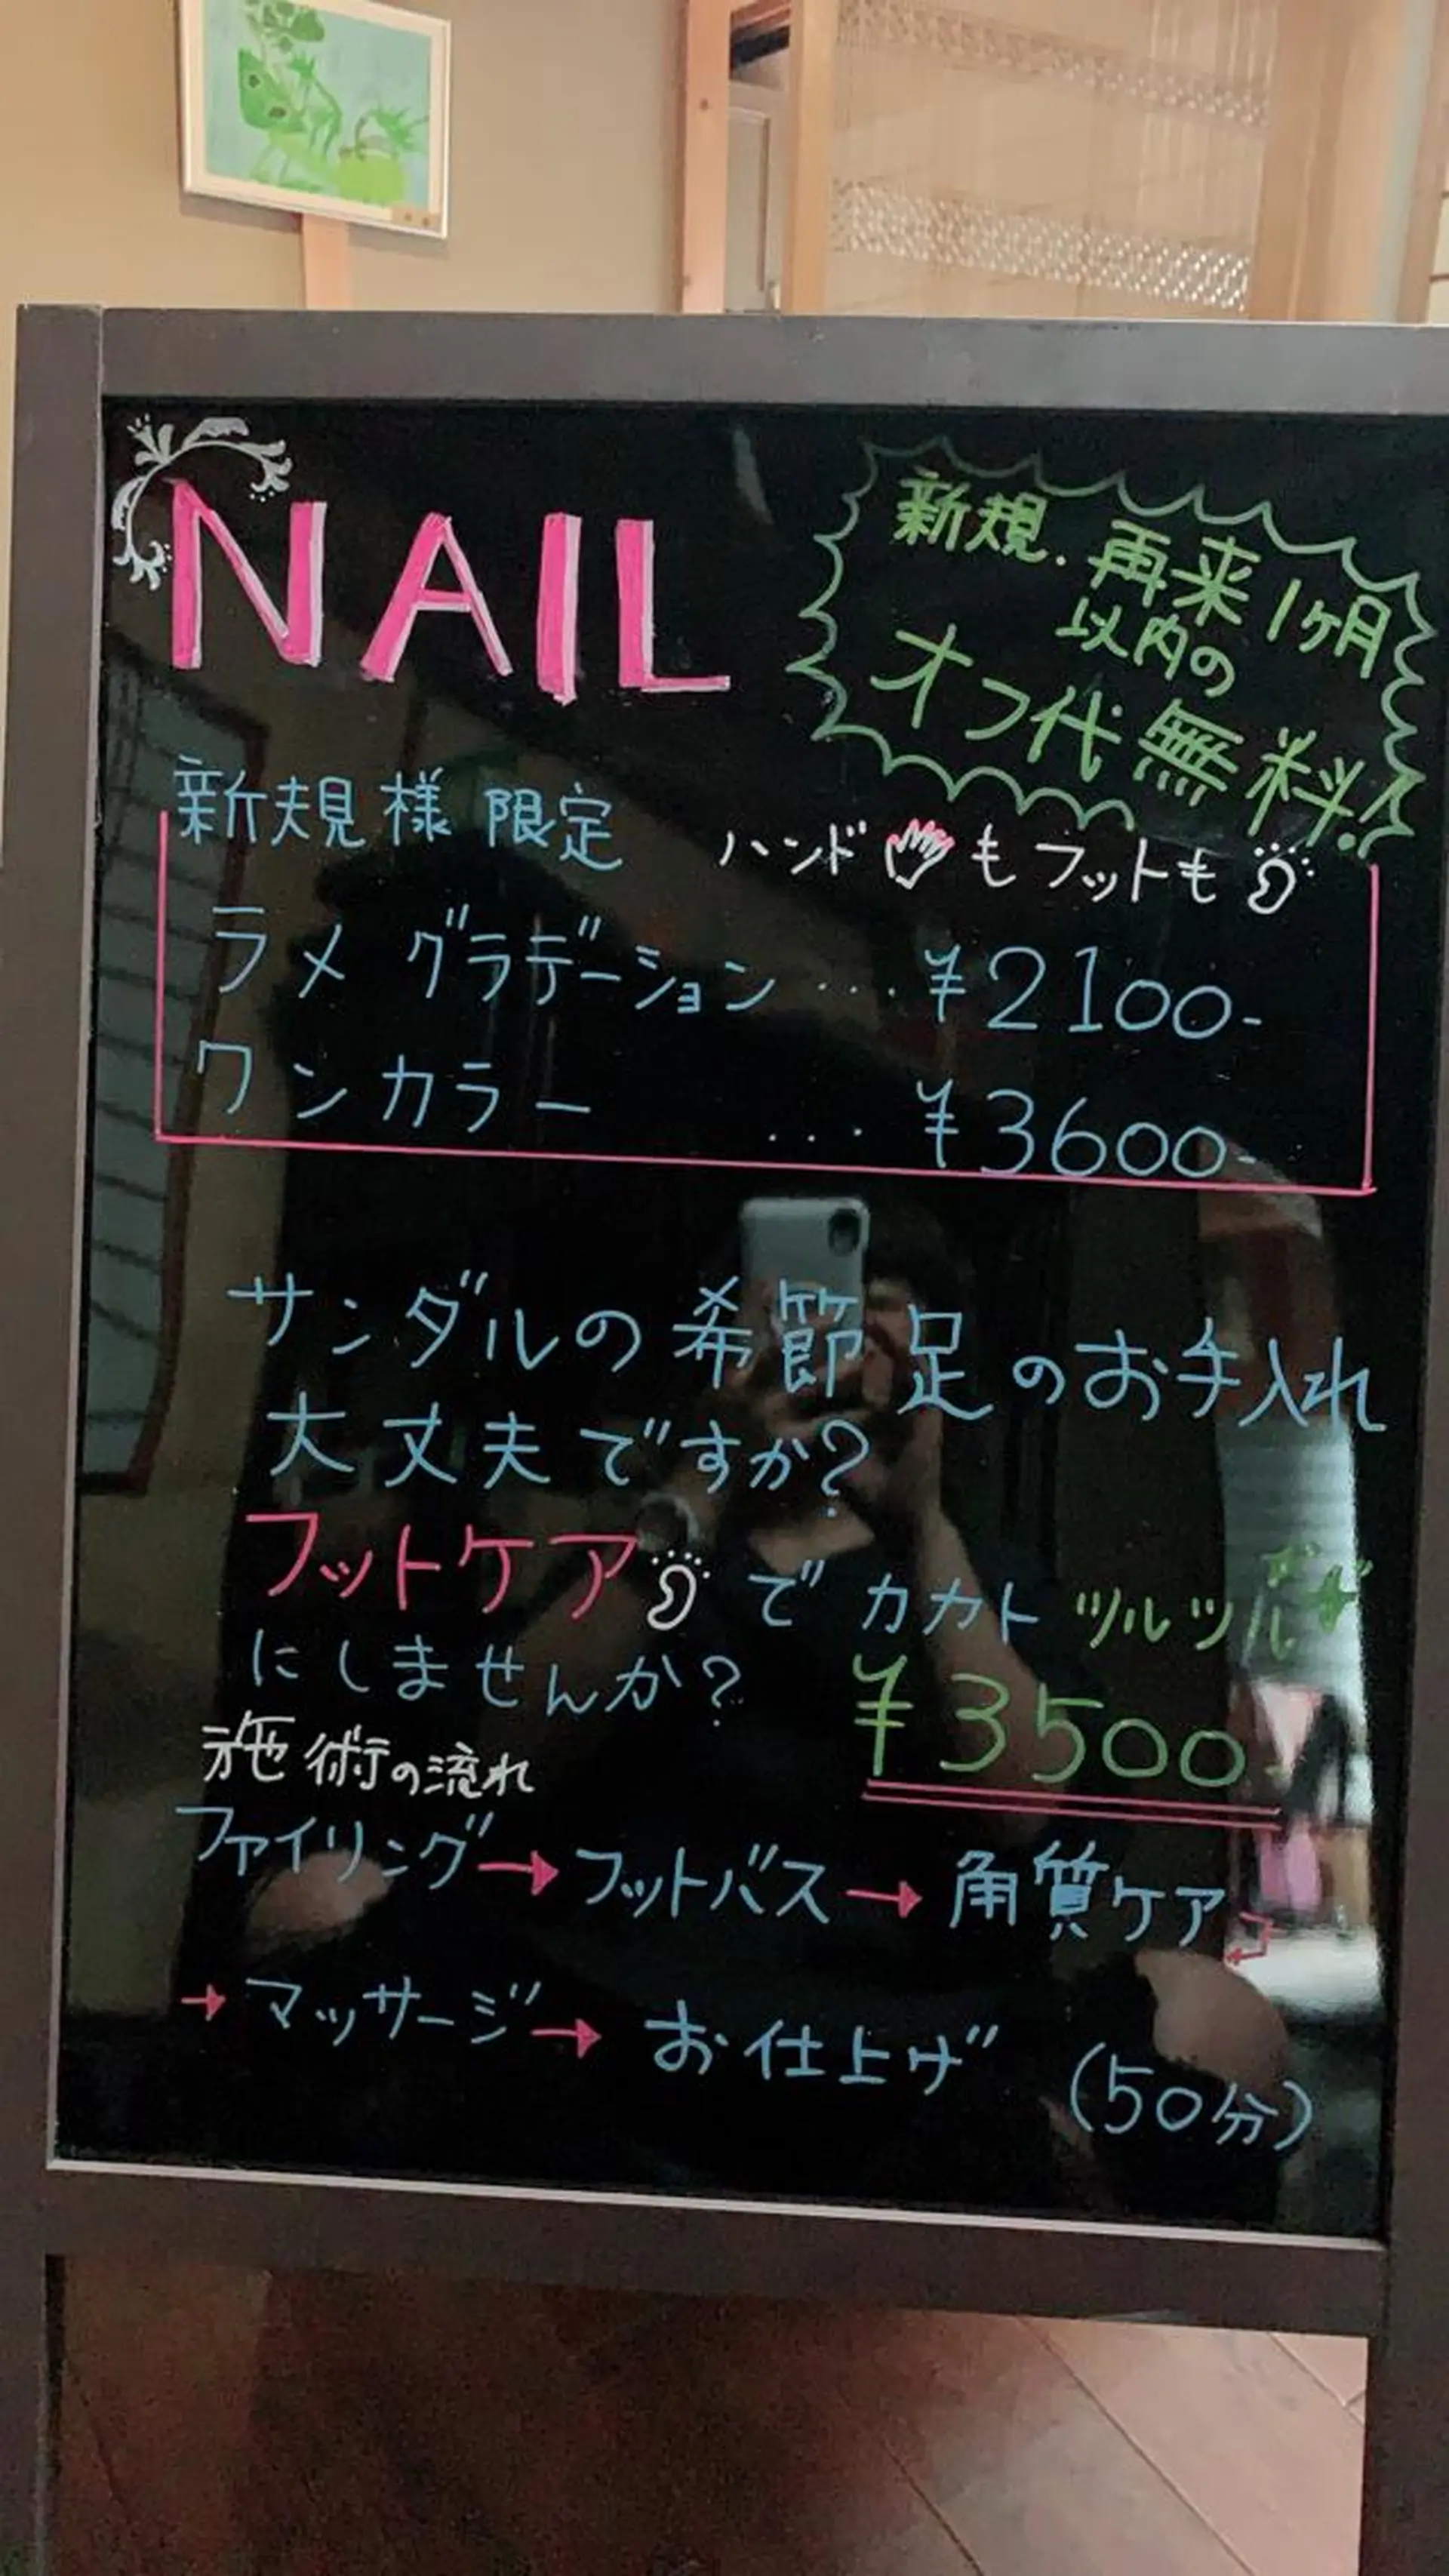 NAIL
新規.再来1ヶ月
以内の
オフ代無料!
新規様 限定
ハンドもフットも
ラメグラデーション…¥2100-
ワンカラー …¥3600-
サンダルの希節足のお手入れ
大丈夫ですか?
フットケアでカカトツルツル
にしませんか?
¥3500-
施術の流れ
ファイリング→フットバス→角質ケア
→マッサージ→お仕上げ (50分)